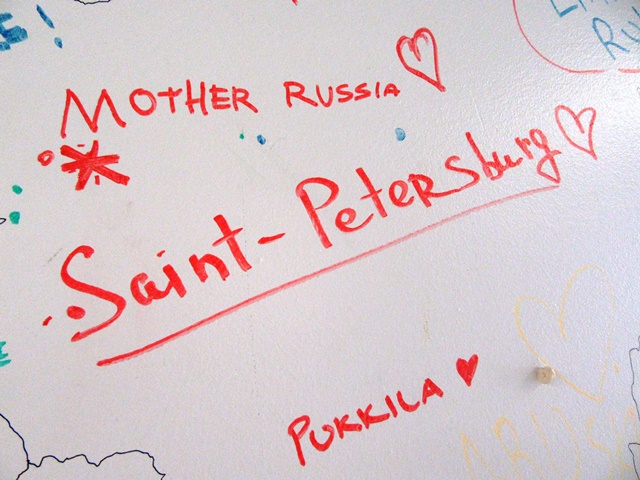 MOTHER RUSSIA
Saint-Petersburg
PUKKILA